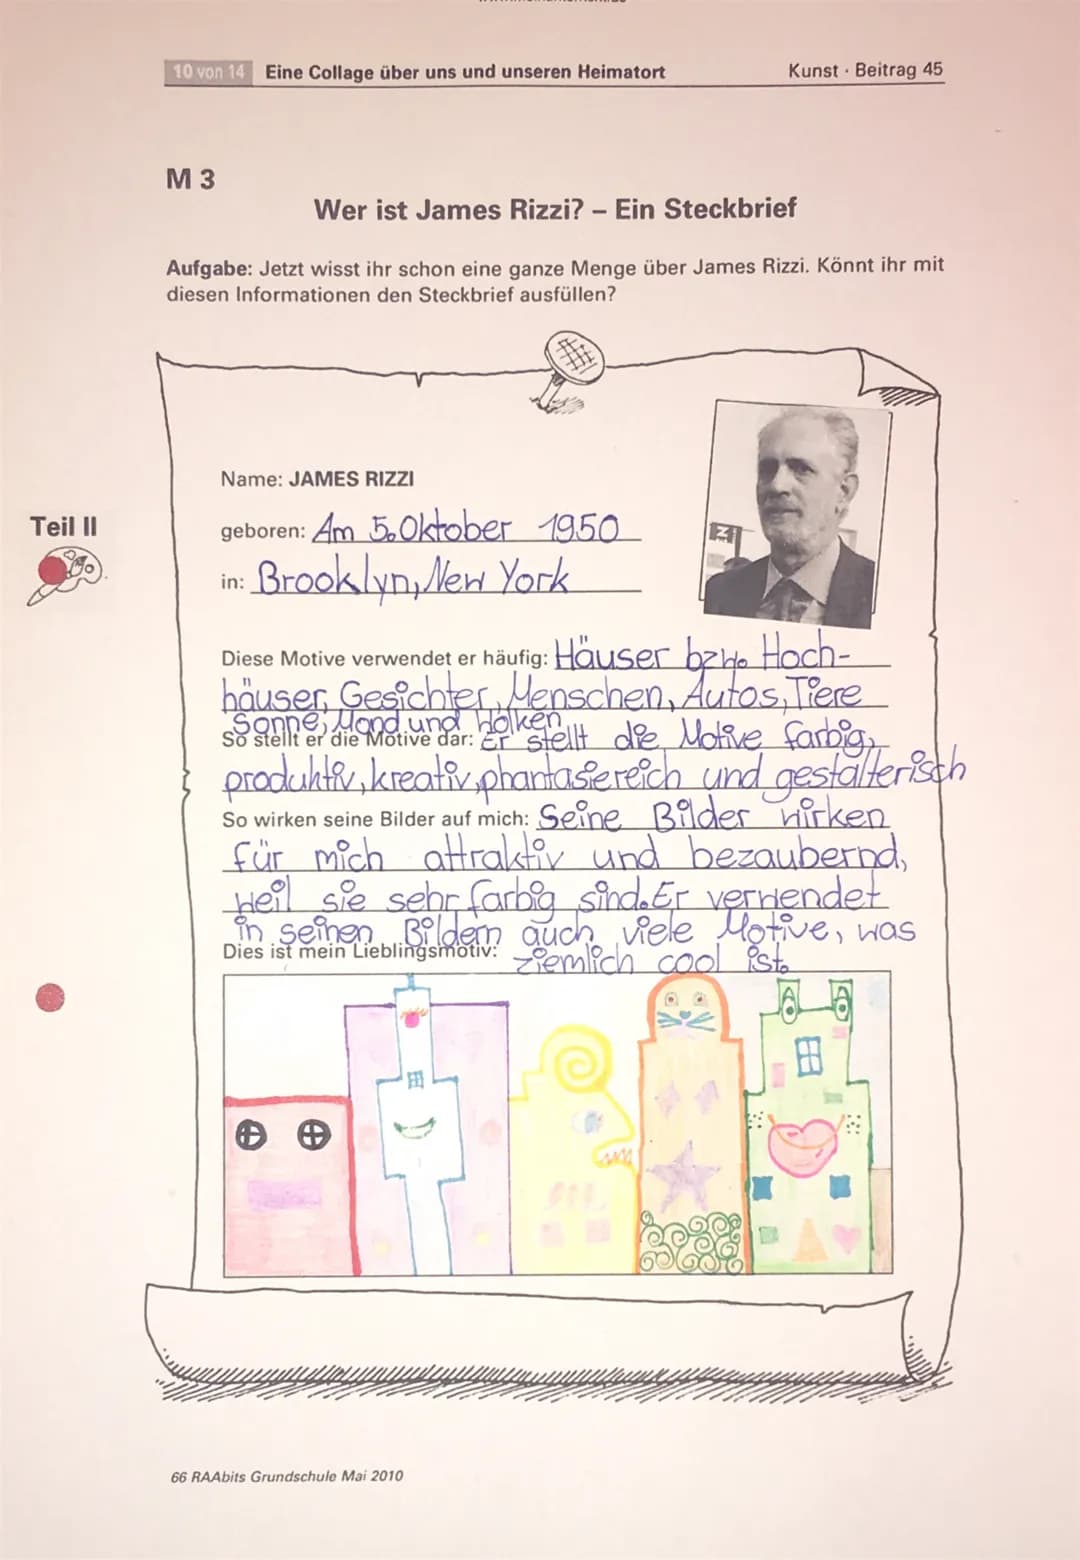 10 von 14 Eine Collage über uns und unseren Heimatort Kunst · Beitrag 45
M 3
Wer ist James Rizzi? – Ein Steckbrief
Aufgabe: Jetzt wisst ihr schon eine ganze Menge über James Rizzi. Könnt ihr mit
diesen Informationen den Steckbrief ausfüllen?
Name: JAMES RIZZI
Teil II
geboren: Am 5. Oktober 1950
in: Brooklyn, New York
Diese Motive verwendet er häufig: Häuser bzw. Hoch-
häuser, Gesichter, Menschen, Autos, Tiere
Sonne, Mond und Wolken
So stellt er die Motive dar: Er stellt die Motive farbig,
produktiv, kreativ, phantasiereich und gestalterisch
So wirken seine Bilder auf mich: Seine Bilder wirken
für mich attraktiv und bezaubernd,
weil sie sehr farbig sind. Er verwendet
in seinen Bildern auch viele Motive, was
ziemlich cool ist.
Dies ist mein Lieblingsmotiv:
66 RAAbits Grundschule Mai 2010